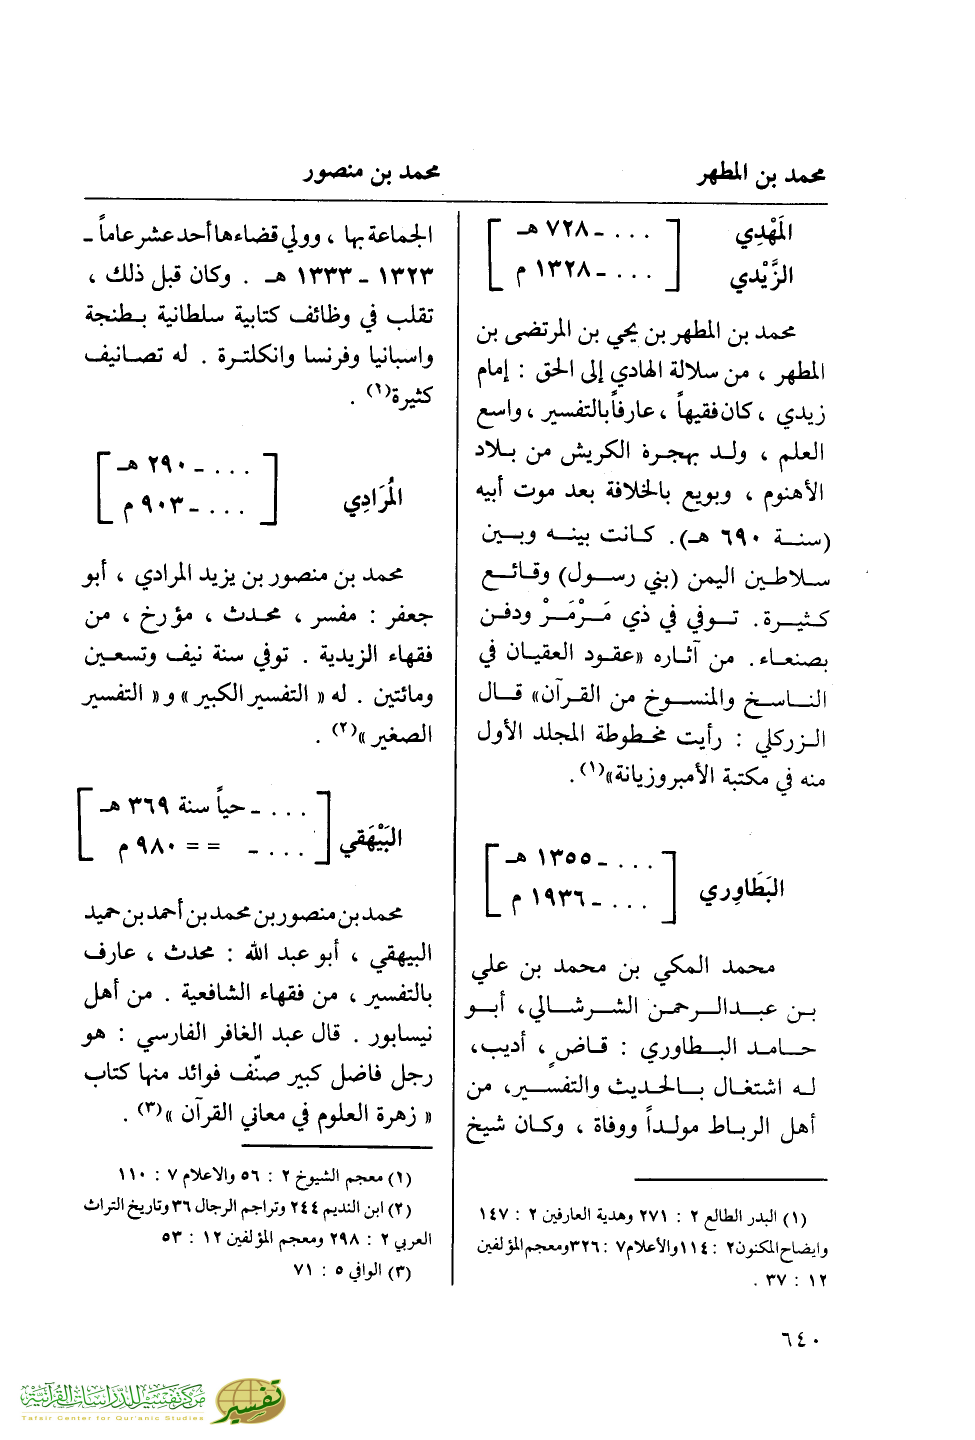 محمد بن المطهر
محمد بن منصور
المَهْدِي
الزَّيْدي
[ ... - ٧٢٨ هـ
... - ١٣٢٨ م ]
محمد بن المطهر بن يحي بن المرتضى بن
المطهر ، من سلالة الهادي إلى الحق : إمام
زيدي ، كان فقيهاً ، عارفاً بالتفسير ، واسع
العلم ، ولد بهجرة الكريش من بلاد
الأهنوم ، وبويع بالخلافة بعد موت أبيه
(سنة ٦٩٠ هـ). كانت بينه وبين
سلاطين اليمن (بني رسول) وقائع
كثيرة. توفي في ذي مَرْمَرْ ودفن
بصنعاء. من آثاره «عقود العقيان في
الناسخ والمنسوخ من القرآن» قال
الزركلي : رأيت مخطوطة المجلد الأول
منه في مكتبة الأمبروزيانة»(١).
البَطَاوِري
[ ... - ١٣٥٥ هـ
... - ١٩٣٦ م ]
محمد المكي بن محمد بن علي
بن عبدالرحمن الشرشالي، أبو
حامد البطاوري : قاضٍ ، أديب،
له اشتغال بالحديث والتفسير، من
أهل الرباط مولداً ووفاة ، وكان شيخ
(١) البدر الطالع ٢ : ٢٧١ وهدية العارفين ٢ : ١٤٧
وايضاح المكنون ٢ : ١١٤ والأعلام ٧ : ٣٢٦ ومعجم المؤلفين
١٢ : ٣٧ .
الجماعة بها ، وولي قضاءها أحد عشر عاماً -
١٣٢٣ - ١٣٣٣ هـ . وكان قبل ذلك ،
تقلب في وظائف كتابية سلطانية بطنجة
واسبانيا وفرنسا وانكلترة . له تصانيف
كثيرة(١) .
المُرَادِي
[ ... - ٢٩٠ هـ
... - ٩٠٣ م ]
محمد بن منصور بن يزيد المرادي ، أبو
جعفر : مفسر ، محدث ، مؤرخ ، من
فقهاء الزيدية . توفي سنة نيف وتسعين
ومائتين . له « التفسير الكبير » و « التفسير
الصغير »(٢) .
البَيْهَقي
[ ... - حياً سنة ٣٦٩ هـ
... - = = ٩٨٠ م ]
محمد بن منصور بن محمد بن أحمد بن حميد
البيهقي ، أبو عبد الله : محدث ، عارف
بالتفسير ، من فقهاء الشافعية . من أهل
نيسابور . قال عبد الغافر الفارسي : هو
رجل فاضل كبير صنّف فوائد منها كتاب
« زهرة العلوم في معاني القرآن »(٣) .
(١) معجم الشيوخ ٢ : ٥٦ والاعلام ٧ : ١١٠
(٢) ابن النديم ٢٤٤ وتراجم الرجال ٣٦ وتاريخ التراث
العربي ٢ : ٢٩٨ ومعجم المؤلفين ١٢ : ٥٣
(٣) الوافي ٥ : ٧١
٦٤٠
مركز تفسير للدراسات القرآنية
Tafsir Center for Qur'anic Studies
تفسير